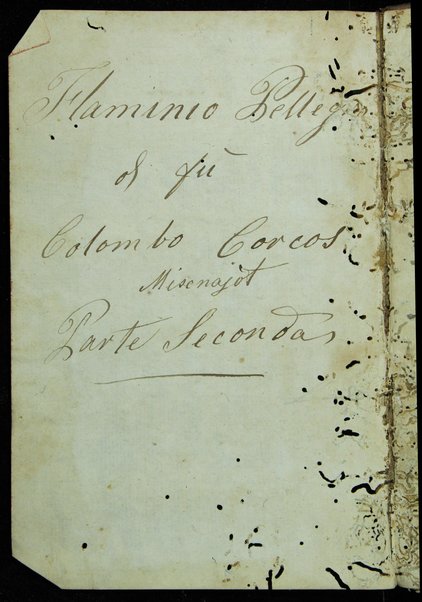 Flaminio Pellegri
di fù
Colombo Corcos
Misenajòt
Parte Seconda